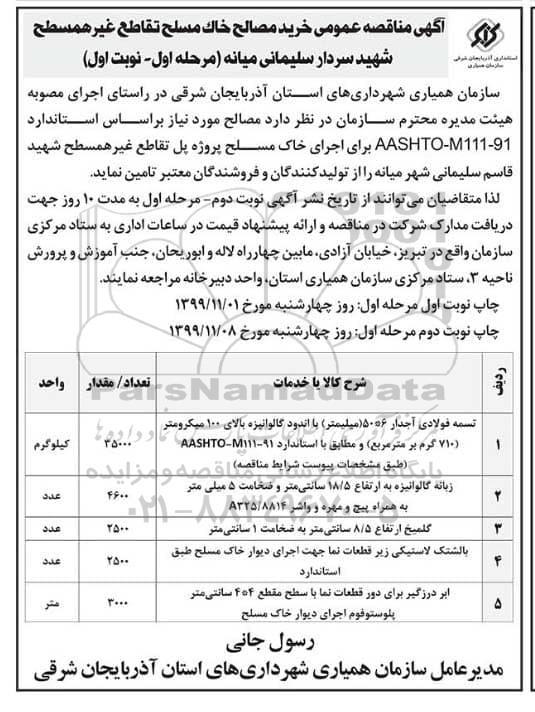 آگهی مناقصه عمومی خرید مصالح خاک مسلح تقاطع غیرهمسطح
شهید سردار سلیمانی میانه (مرحله اول- نوبت اول)
استانداری آذربایجان شرقی
سازمان همیاری
سازمان همیاری شهرداری‌های استان آذربایجان شرقی در راستای اجرای مصوبه
هیئت مدیره محترم سازمان در نظر دارد مصالح مورد نیاز براساس استاندارد
AASHTO-M111-91 برای اجرای خاک مسلح پروژه پل تقاطع غیرهمسطح شهید
قاسم سلیمانی شهر میانه را از تولیدکنندگان و فروشندگان معتبر تامین نماید.
لذا متقاضیان می‌توانند از تاریخ نشر آگهی نوبت دوم- مرحله اول به مدت ۱۰ روز جهت
دریافت مدارک شرکت در مناقصه و ارائه پیشنهاد قیمت در ساعات اداری به ستاد مرکزی
سازمان واقع در تبریز، خیابان آزادی، مابین چهارراه لاله و ابوریحان، جنب آموزش و پرورش
ناحیه ۳، ستاد مرکزی سازمان همیاری استان، واحد دبیرخانه مراجعه نمایند.
چاپ نوبت اول مرحله اول: روز چهارشنبه مورخ ۱۳۹۹/۱۱/۰۱
چاپ نوبت دوم مرحله اول: روز چهارشنبه مورخ ۱۳۹۹/۱۱/۰۸
ردیف شرح کالا یا خدمات تعداد/ مقدار واحد
تسمه فولادی آجدار ۶*۵۰(میلیمتر) با اندود گالوانیزه بالای ۱۰۰ میکرومتر
۱ (۷۱۰ گرم بر مترمربع) و مطابق با استاندارد AASHTO-M111-91 ۳۵۰۰۰ کیلوگرم
(طبق مشخصات پیوست شرایط مناقصه)
۲ زبانه گالوانیزه به ارتفاع ۱۸/۵ سانتی‌متر و ضخامت ۵ میلی متر ۴۶۰۰ عدد
به همراه پیچ و مهره و واشر A۳۲۵/۸۸۱۴
۳ گلمیخ ارتفاع ۸/۵ سانتی‌متر به ضخامت ۱ سانتی‌متر ۲۵۰۰ عدد
۴ بالشتک لاستیکی زیر قطعات نما جهت اجرای دیوار خاک مسلح طبق ۲۵۰۰ عدد
استاندارد
۵ ابر درزگیر برای دور قطعات نما با سطح مقطع ۴*۴ سانتی‌متر ۳۰۰۰ متر
پلوستوفوم اجرای دیوار خاک مسلح
رسول جانی
مدیرعامل سازمان همیاری شهرداری‌های استان آذربایجان شرقی
ParsNamadData
پایگاه اطلاع رسانی مناقصه و مزایده
۰۲۱-۸۸۳۴۹۶۷۰-۵